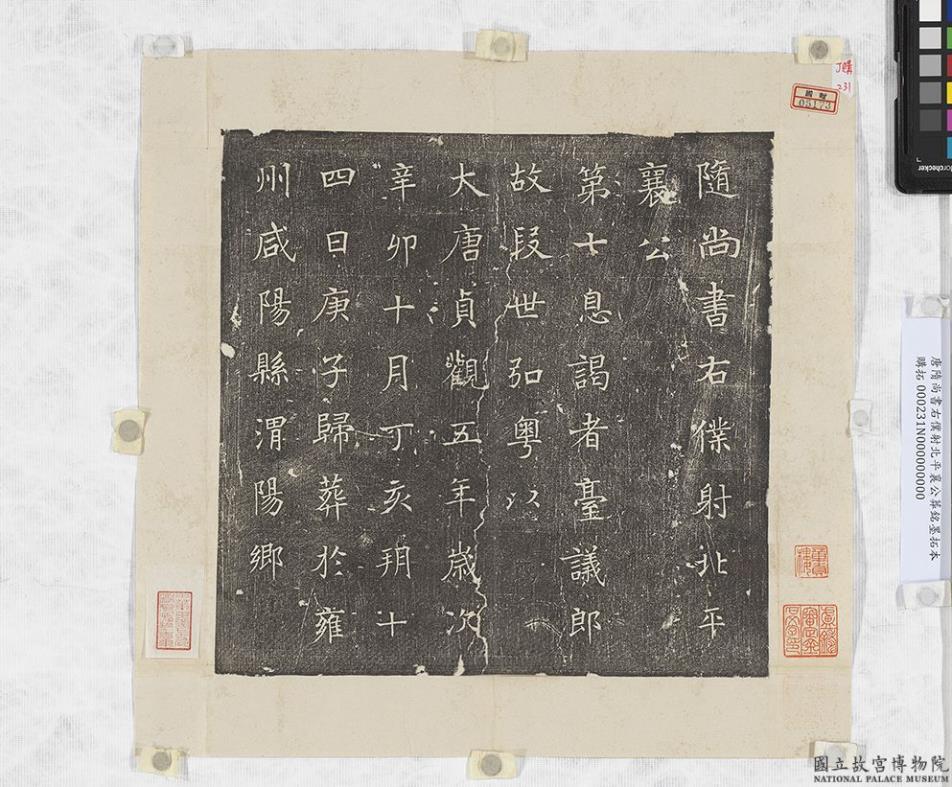 隨尚書右僕射北平
襄公
第十息謁者臺議郎
故段世弘粵以
大唐貞觀五年歲次
辛卯十月丁亥朔十
四日庚子歸葬於雍
州咸陽縣渭陽鄉
購
231
國贈
05173
唐隋尚書右僕射北平襄公葬銘墨拓本
購拓 000231N000000000
colorchecker
國立故宮博物院
NATIONAL PALACE MUSEUM